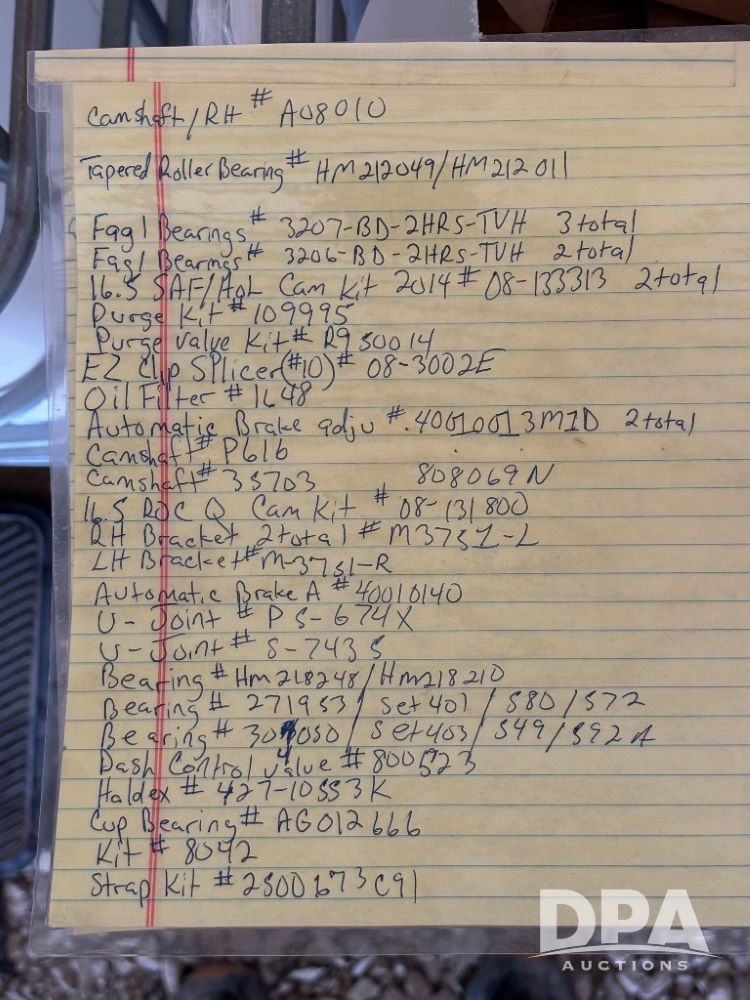 Camshaft/RH # A08010
Tapered Roller Bearing # HM212049/HM212011
Fag1 Bearings # 3207-BD-2HRS-TVH 3 total
Fag1 Bearings # 3206-BD-2HRS-TVH 2 total
16.5 SAF/HOL Cam Kit 2014 # 08-133313 2 total
Purge Kit # 109995
Purge Valve Kit # R950014
EZ Clip Splicer (#10) # 08-3002E
Oil Filter # 1648
Automatic Brake adju #.40010013MID 2 total
Camshaft # P616
Camshaft # 35703 808069N
16.5 ROC Q Cam Kit # 08-131800
RH Bracket 2 total # M3751-L
LH Bracket # M-3751-R
Automatic Brake A # 40010140
U-Joint # PS-674X
U-Joint # S-743S
Bearing # Hm218248/Hm218210
Bearing # 271953/ set 401 / 580 / 572
Bearing # 304050 / set 403 / 549 / 592A
Dash Control Valve # 800523
Haldex # 427-10553K
Cup Bearing # AG012666
Kit # 8042
Strap Kit # 2500673C91
DPA
AUCTIONS